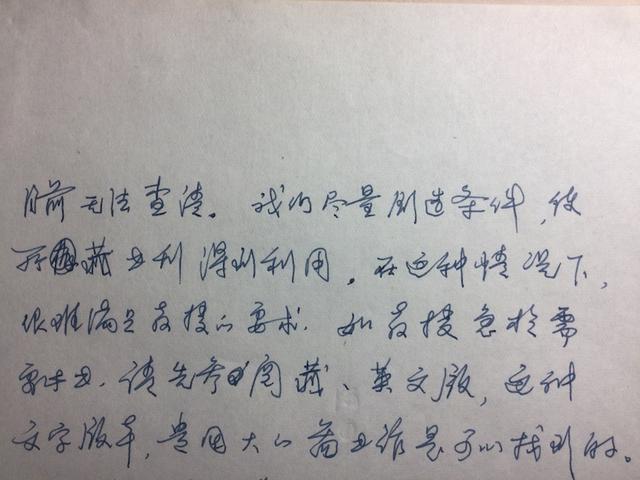 目前无法查清。我们尽量创造条件,使
存藏书刊得到利用。在这种情况下,
很难满足教授的要求。如教授急於需
要本书,请先参阅图藏、英文版,这种
文字版本,贵国大的图书馆是可以找到的。